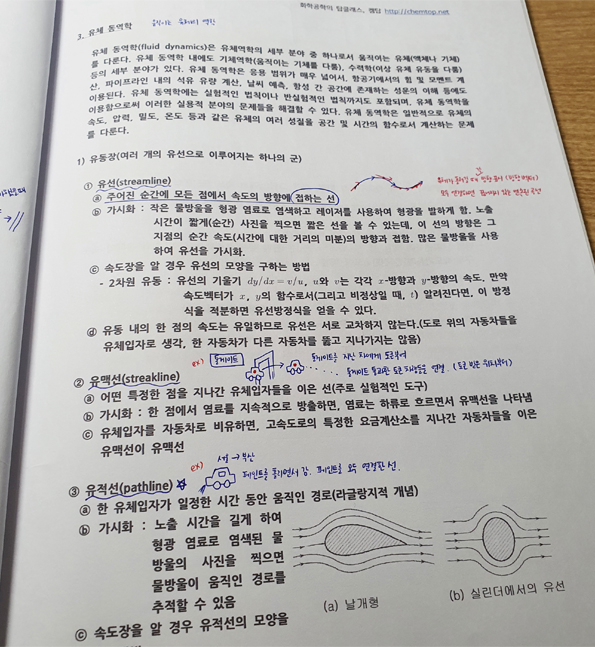 화학공학의 탑클래스, 켐탑 http://chemtop.net
3. 유체 동역학
유체 동역학(fluid dynamics)은 유체역학의 세부 분야 중 하나로서 움직이는 유체(액체나 기체)
를 다룬다. 유체 동역학 내에도 기체역학(움직이는 기체를 다룸), 수력학(이상 유체 유동을 다룸)
등의 세부 분야가 있다. 유체 동역학은 응용 범위가 매우 넓어서, 항공기에서의 힘 및 모멘트 계
산, 파이프라인 내의 석유 유량 계산, 날씨 예측, 항성 간 공간에 존재하는 성운의 이해 등에도
이용된다. 유체 동역학에는 실험적인 법칙이나 반실험적인 법칙까지도 포함되며, 유체 동역학을
이용함으로써 이러한 실용적 분야의 문제들을 해결할 수 있다. 유체 동역학은 일반적으로 유체의
속도, 압력, 밀도, 온도 등과 같은 유체의 여러 성질을 공간 및 시간의 함수로서 계산하는 문제
를 다룬다.
1) 유동장(여러 개의 유선으로 이루어지는 하나의 군)
① 유선(streamline)
ⓐ 주어진 순간에 모든 점에서 속도의 방향에 접하는 선
ⓑ 가시화 : 작은 물방울을 형광 염료로 염색하고 레이저를 사용하여 형광을 발하게 함. 노출
시간이 짧게(순간) 사진을 찍으면 짧은 선을 볼 수 있는데, 이 선의 방향은 그
지점의 순간 속도(시간에 대한 거리의 미분)의 방향과 접함. 많은 물방울을 사용
하여 유선을 가시화.
ⓒ 속도장을 알 경우 유선의 모양을 구하는 방법
- 2차원 유동 : 유선의 기울기 dy/dx = v/u, u와 v는 각각 x-방향과 y-방향의 속도. 만약
속도벡터가 x, y의 함수로서(그리고 비정상일 때, t) 알려진다면, 이 방정
식을 적분하면 유선방정식을 얻을 수 있다.
ⓓ 유동 내의 한 점의 속도는 유일하므로 유선은 서로 교차하지 않는다.(도로 위의 자동차들을
유체입자로 생각, 한 자동차가 다른 자동차를 뚫고 지나가지는 않음)
ex) 톨게이트
톨게이트를 지난
② 유맥선(streakline)
ⓐ 어떤 특정한 점을 지나간 유체입자들을 이은 선(주로 실험적인 도구)
ⓑ 가시화 : 한 점에서 염료를 지속적으로 방출하면, 염료는 하류로 흐르면서 유맥선을 나타냄
ⓒ 유체입자를 자동차로 비유하면, 고속도로의 특정한 요금계산소를 지나간 자동차들을 이은
유맥선이 유맥선
ex) 서울 → 부산
페인트를 흘리면서 감. 페인트를 모두 연결한 선.
③ 유적선(pathline)
ⓐ 한 유체입자가 일정한 시간 동안 움직인 경로(라글랑지적 개념)
ⓑ 가시화 : 노출 시간을 길게 하여
형광 염료로 염색된 물
방울의 사진을 찍으면
물방울이 움직인 경로를
추적할 수 있음
(a) 날개형
(b) 실린더에서의 유선
ⓒ 속도장을 알 경우 유적선의 모양을